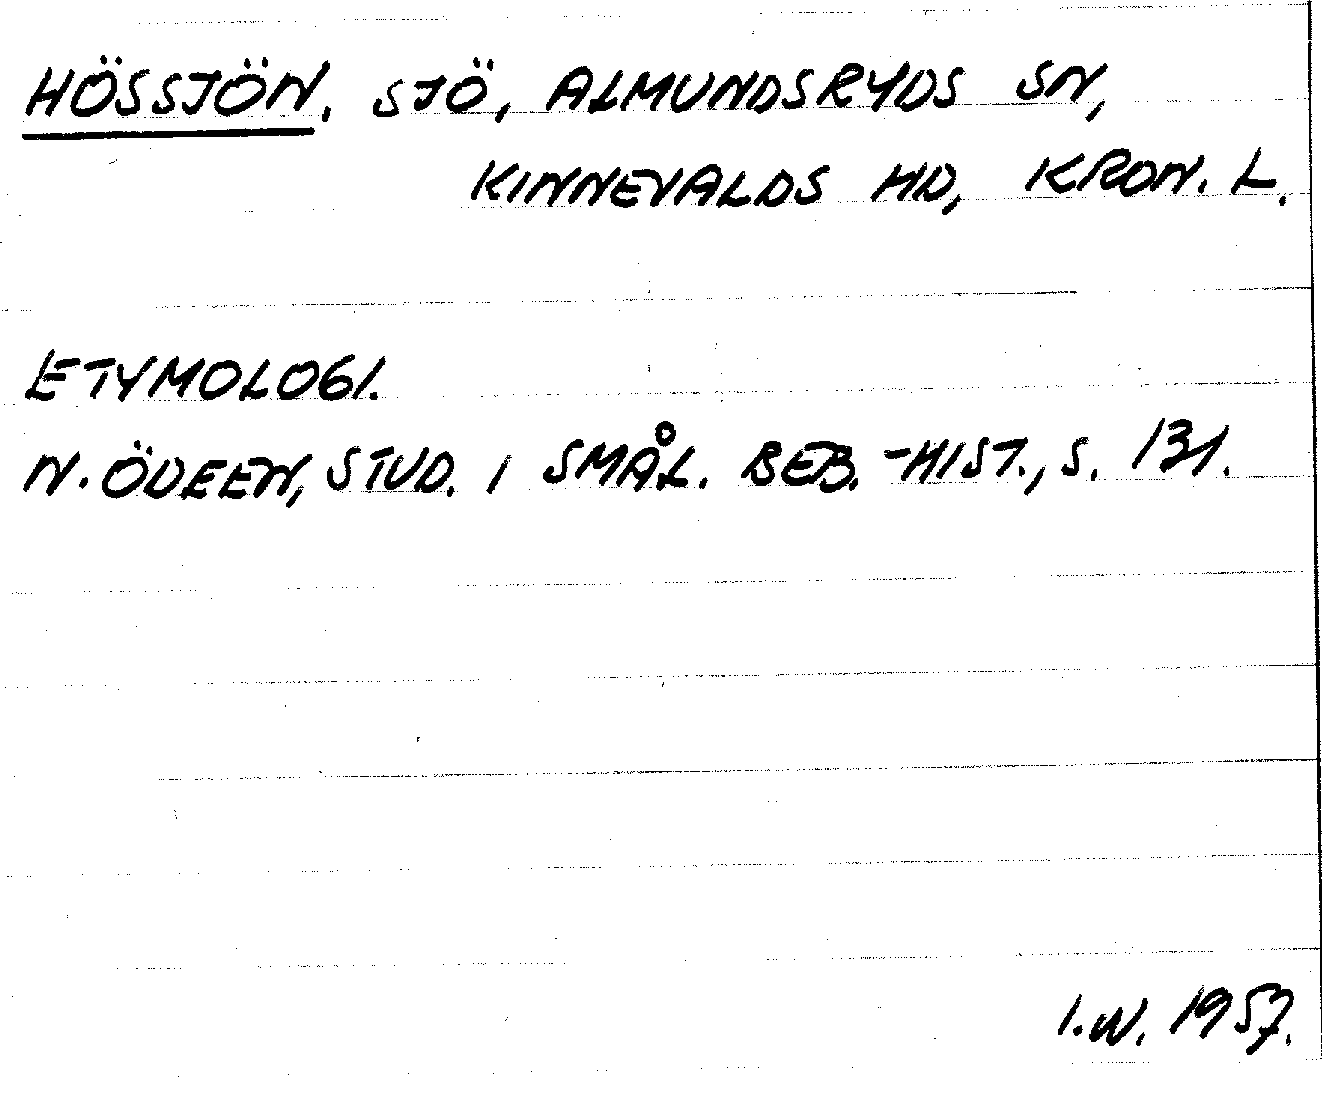 HÖSSJÖN. SJÖ, ALMUNDSRYDS SN,
KINNEVALDS HD, KRON. L.
ETYMOLOGI.
N. ÖDEEN, STUD. I SMÅL. BEB.-HIST., S. 131.
I.W. 1957.